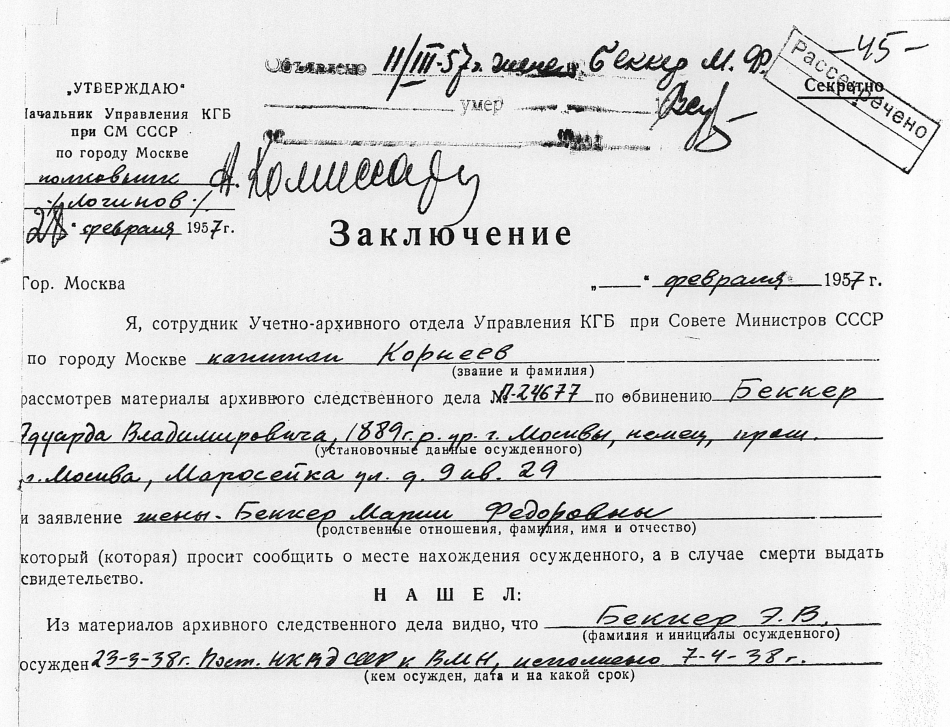 Объявлено 11/III-57г. жене Беккер М. Ф.
-45-
Рассекречено
Секретно
умер
„УТВЕРЖДАЮ“
Начальник Управления КГБ
при СМ СССР
по городу Москве
полковник
/Логинов/
28 “ февраля 1957 г.
Заключение
Гор. Москва
„ “ февраля 1957 г.
Я, сотрудник Учетно-архивного отдела Управления КГБ при Совете Министров СССР
по городу Москве капитан Корнеев
(звание и фамилия)
рассмотрев материалы архивного следственного дела № П-24677 по обвинению Беккер
Эдуарда Владимировича, 1889г.р. ур. г. Москвы, немец, прож.
(установочные данные осужденного)
г. Москва, Маросейка ул. д. 9 кв. 29
и заявление жены - Беккер Марии Федоровны
(родственные отношения, фамилия, имя и отчество)
который (которая) просит сообщить о месте нахождения осужденного, а в случае смерти выдать
свидетельство.
НАШЕЛ:
Из материалов архивного следственного дела видно, что Беккер Э.В.
(фамилия и инициалы осужденного)
осужден 23-3-38г. Пост. НКВД СССР к ВМН, исполнено 7-4-38г.
(кем осужден, дата и на какой срок)